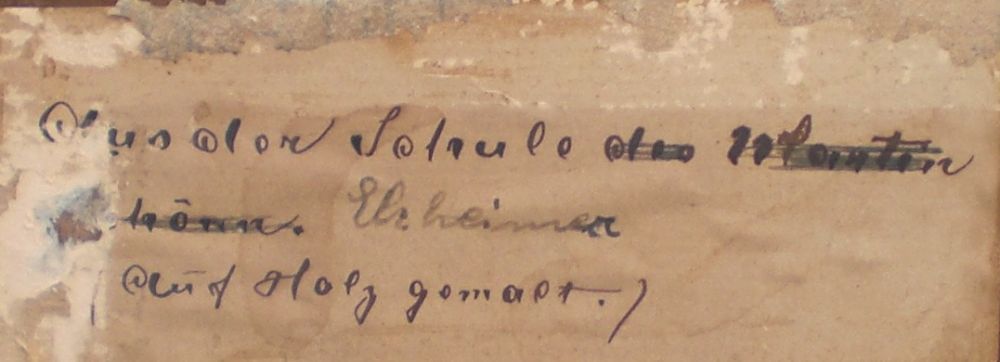 Aus der Schule des Martin
Elzheimer
(auf Holz gemalt.)